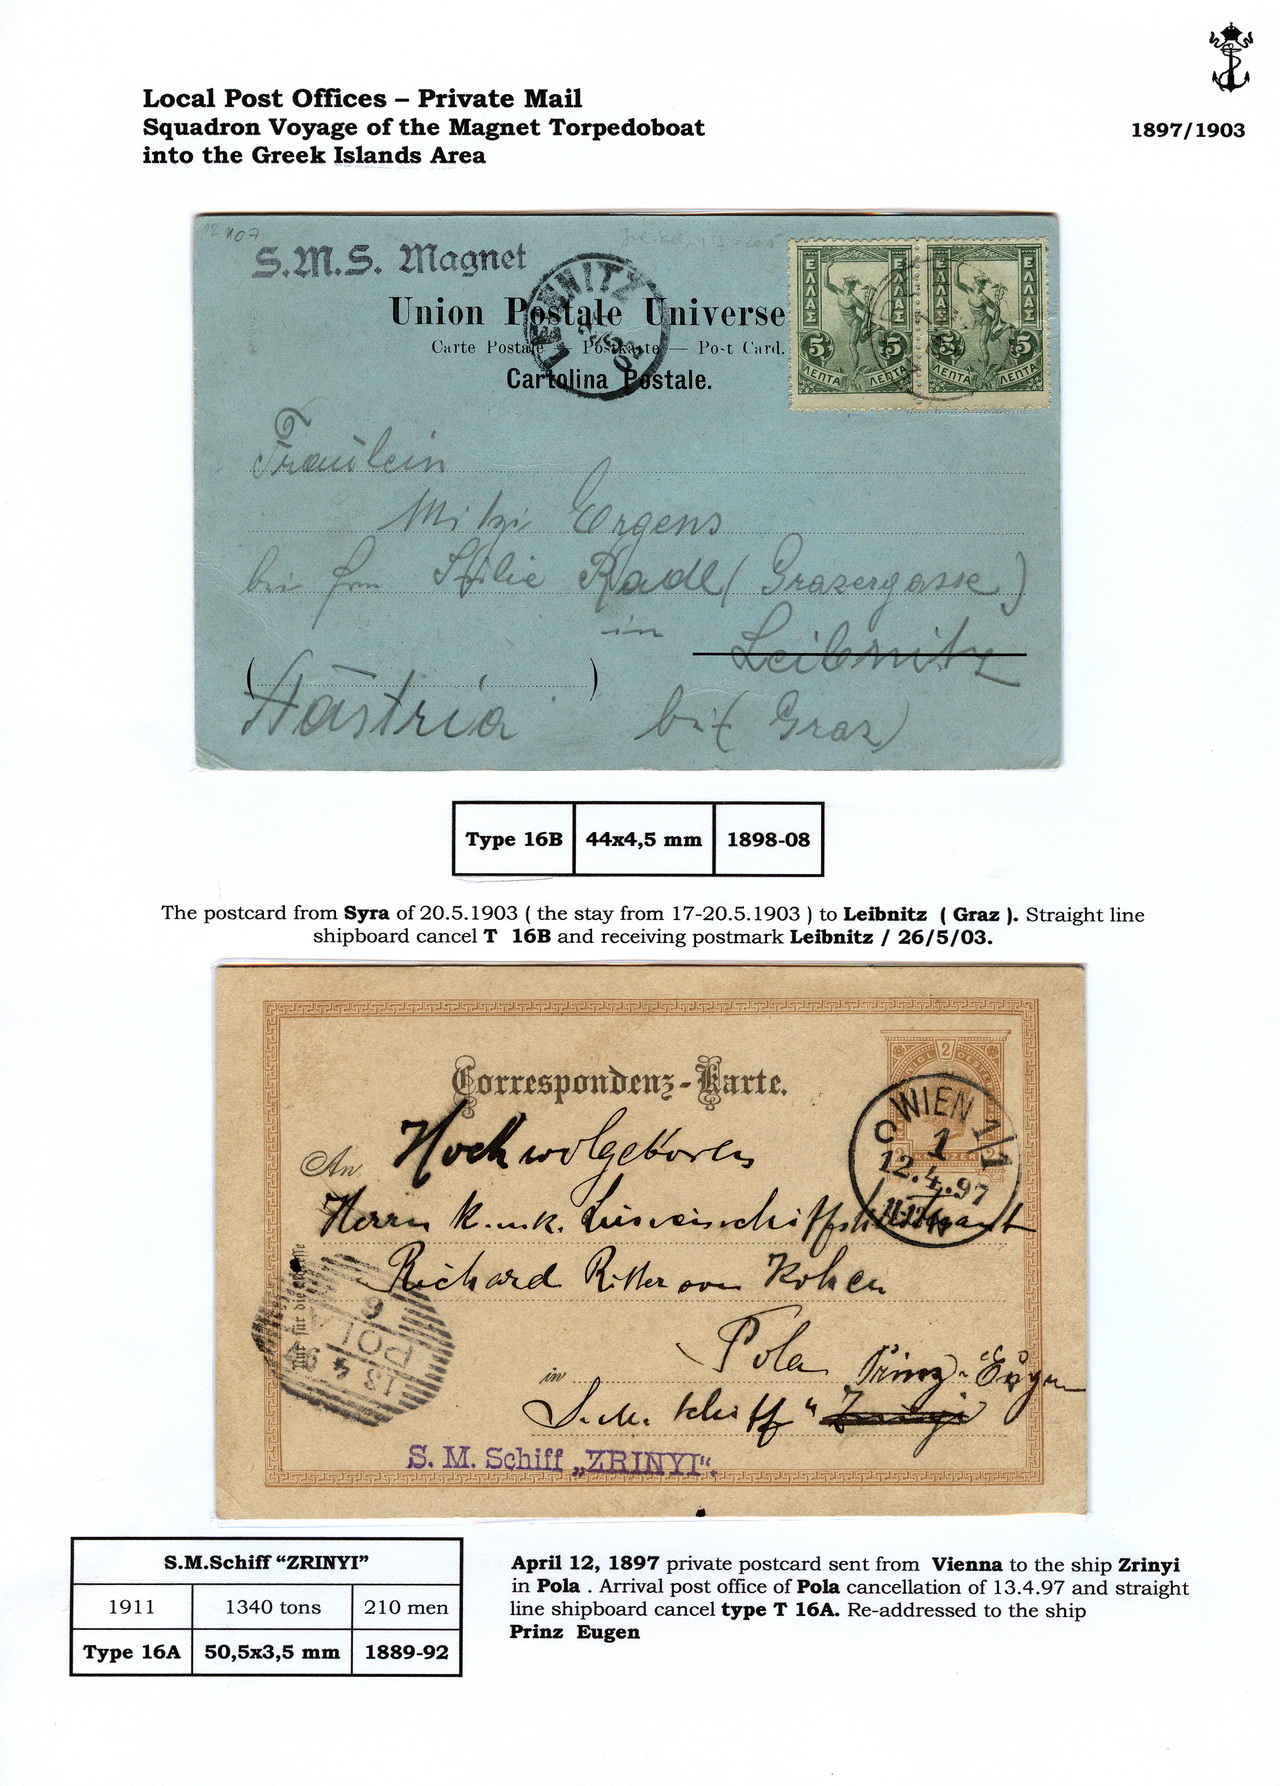 Local Post Offices – Private Mail
Squadron Voyage of the Magnet Torpedoboat
into the Greek Islands Area
1897/1903
12107
S.M.S. Magnet
LEIBNITZ
Union Postale Universe
Carte Postale — Postkarte — Post Card.
Cartolina Postale.
ΕΛΛΑΣ ΕΛΛΑΣ
5 5
ΛΕΠΤΑ ΛΕΠΤΑ
ΕΛΛΑΣ ΕΛΛΑΣ
5 5
ΛΕΠΤΑ ΛΕΠΤΑ
Fräulein
Mitzi Ergens
bei Frau Radl (Grazergasse)
in Leibnitz
Austria bei (Graz)
Type 16B 44x4,5 mm 1898-08
The postcard from Syra of 20.5.1903 ( the stay from 17-20.5.1903 ) to Leibnitz ( Graz ). Straight line
shipboard cancel T 16B and receiving postmark Leibnitz / 26/5/03.
2
Correspondenz-Karte.
WIEN 1/1
1
12.4.97
An Hochwolgeboren
Herrn k. u. k. Linienschiffslieutenant
Richard Ritter von
für die
6
POLA
13 4 97
Pola Prinz Eugen
in
S. M. Schiff "Zrinyi
S. M. Schiff „ZRINYI“.
S.M.Schiff “ZRINYI”
1911 1340 tons 210 men
Type 16A 50,5x3,5 mm 1889-92
April 12, 1897 private postcard sent from Vienna to the ship Zrinyi
in Pola . Arrival post office of Pola cancellation of 13.4.97 and straight
line shipboard cancel type T 16A. Re-addressed to the ship
Prinz Eugen